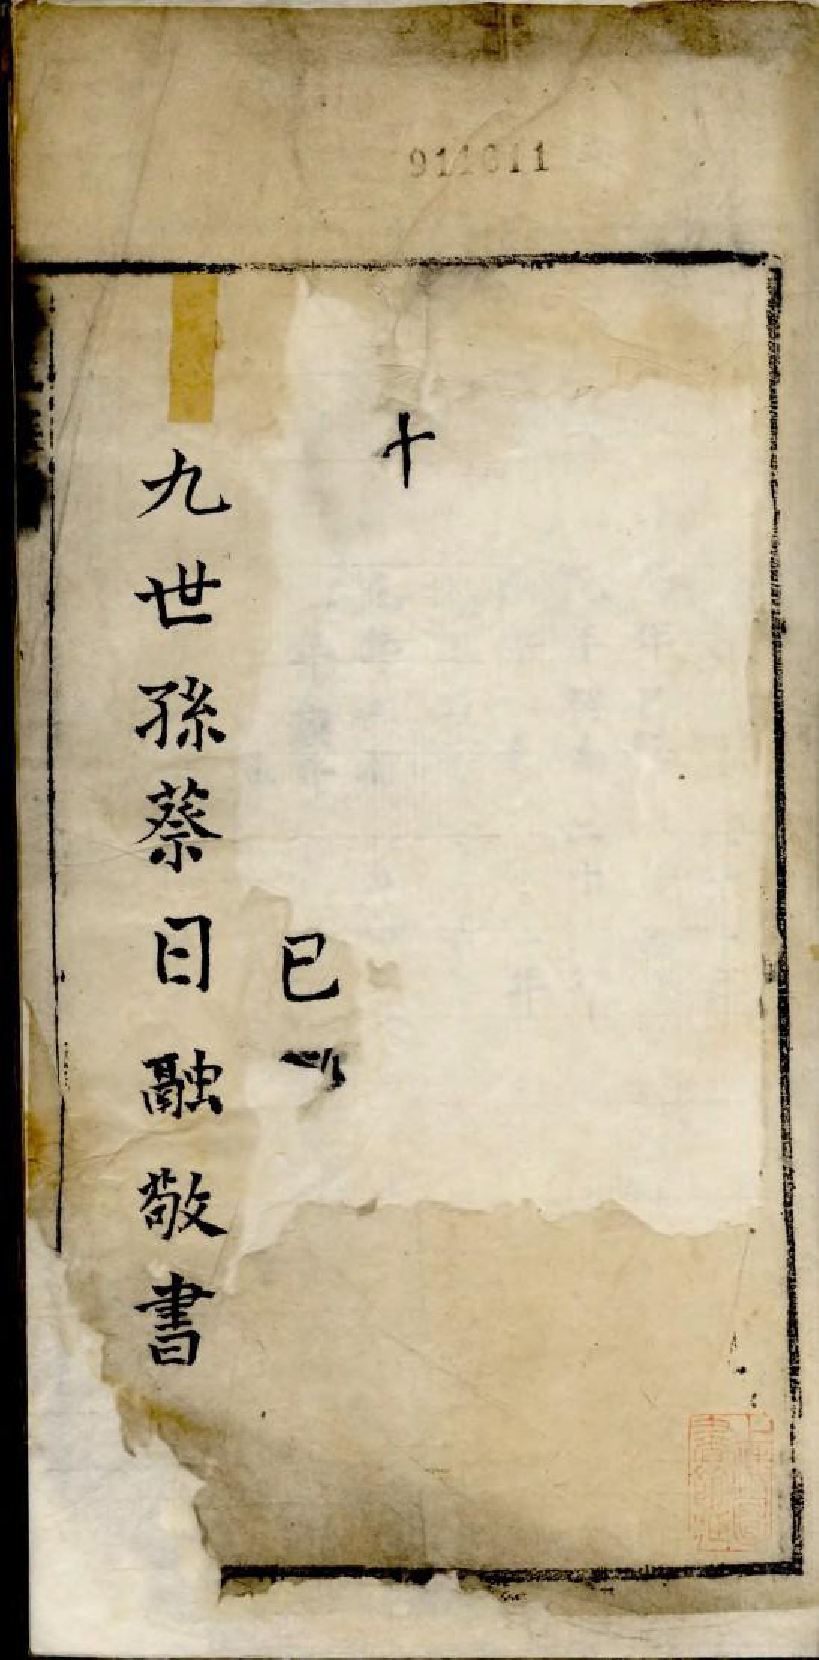 911011
十
已
九世孫蔡日融敬書